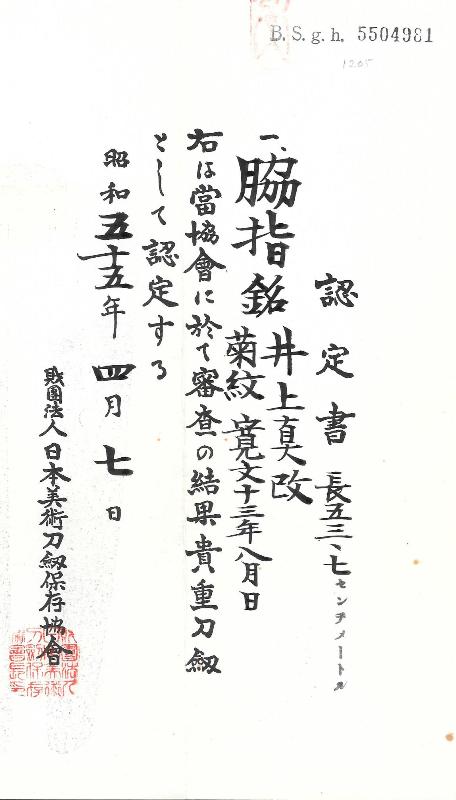 B. S. g. h. 5504981
1205
認定書
長五三、七センチメートル
一、脇指 銘 井上真改
菊紋 寛文十三年八月日
右は當協會に於て審査の結果貴重刀劔
として認定する
昭和五十五年四月七日
財團法人日本美術刀劔保存協會